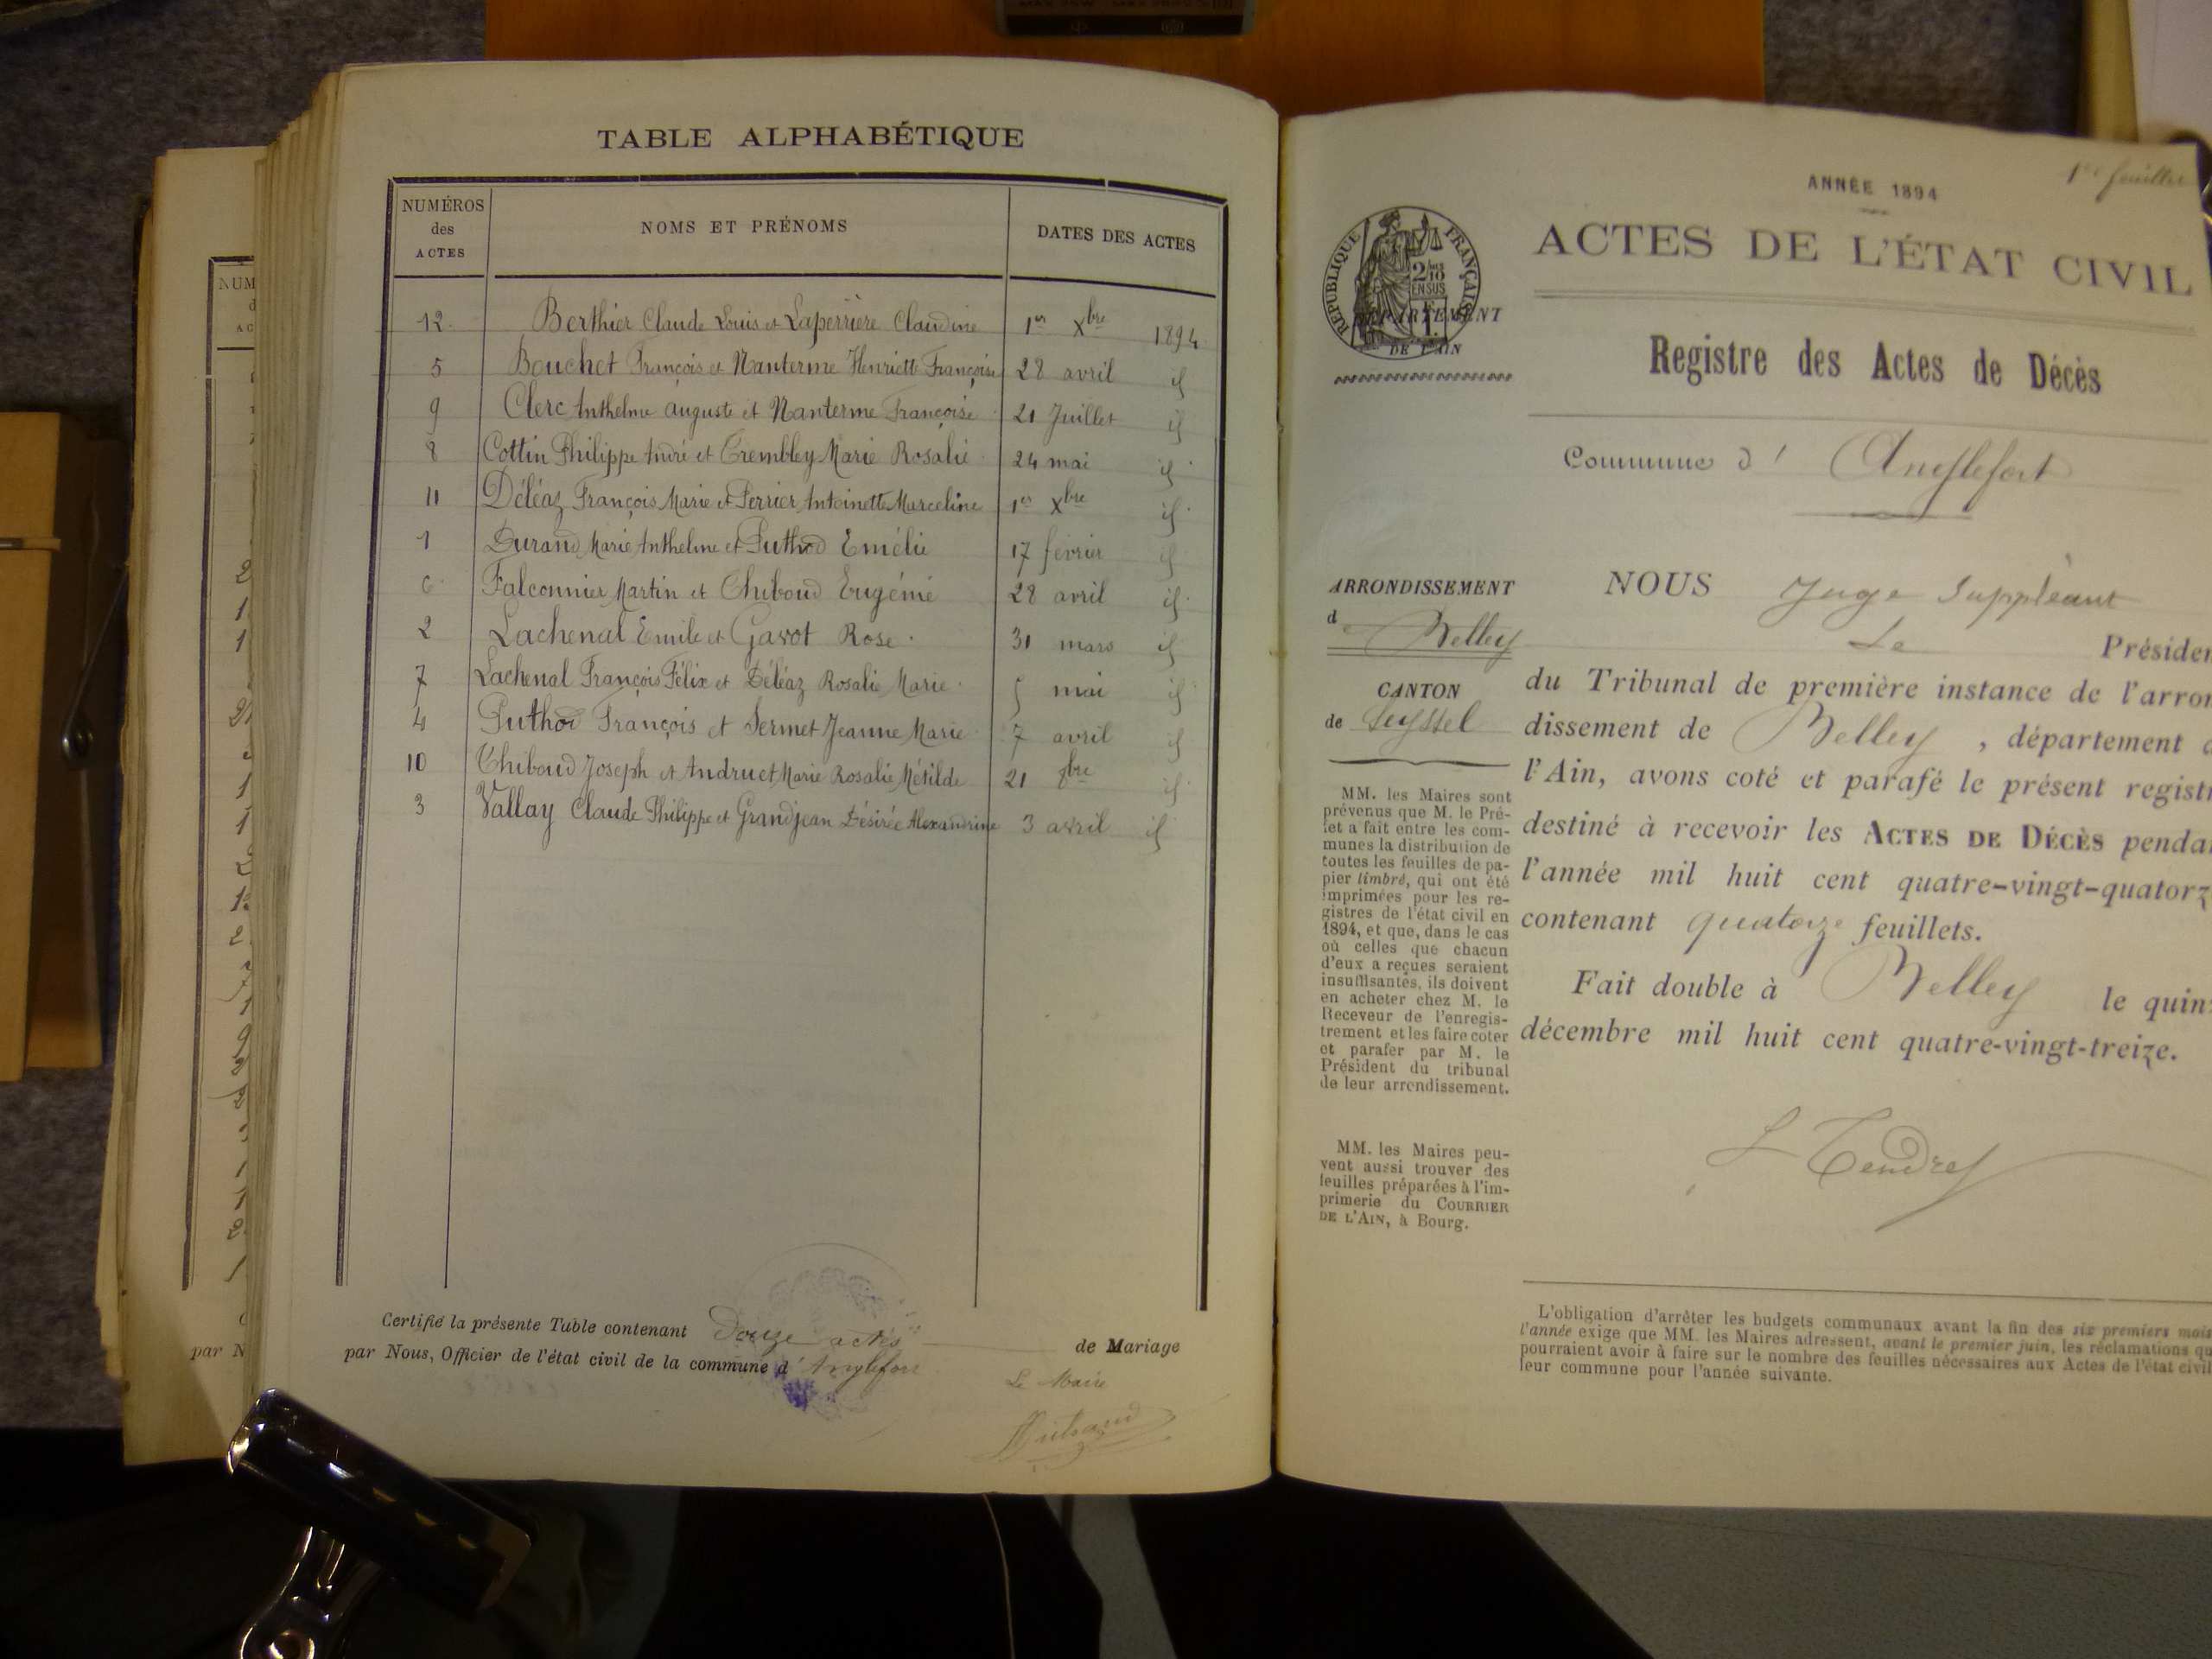 TABLE ALPHABÉTIQUE
NUMÉROS des ACTES NOMS ET PRÉNOMS DATES DES ACTES
12 Berthier Claude Louis et Laperrière Claudine 1er Xbre 1894
5 Bouchet François et Nanterme Henriette Françoise 28 avril id
9 Clerc Anthelme auguste et Nanterme Françoise 21 Juillet id
8 Cottin Philippe André et Trembley Marie Rosalie 24 mai id
11 Déléaz François Marie et Perrier Antoinette Marceline 1er Xbre id
1 Durand Marie Anthelme et Puthod Emélie 17 février id
6 Falconnier Martin et Thiboud Eugénie 28 avril id
2 Lachenal Emile et Gavot Rose 31 mars id
7 Lachenal François Félix et Déléaz Rosalie Marie 5 mai id
4 Puthod François et Sermet Jeanne Marie 7 avril id
10 Thiboud Joseph et Andruet Marie Rosalie Métilde 21 8bre id
3 Vallay Claude Philippe et Grandjean Désirée Alexandrine 3 avril id
Certifié la présente Table contenant Douze actes de Mariage
par Nous, Officier de l'état civil de la commune d'Anglefort
Le Maire
NUM
AC
par N
1er feuillet
ANNÉE 1894
ACTES DE L'ÉTAT CIVIL
RÉPUBLIQUE FRANÇAISE
2/10 EN SUS
DÉPARTEMENT
DE L'AIN
Registre des Actes de Décès
Commune d' Anglefort
ARRONDISSEMENT
de Belley
CANTON
de Seyssel
MM. les Maires sont
prévenus que M. le Pré-
fet a fait entre les com-
munes la distribution de
toutes les feuilles de pa-
pier timbré, qui ont été
imprimées pour les re-
gistres de l'état civil en
1894, et que, dans le cas
où celles que chacun
d'eux a reçues seraient
insuffisantes, ils doivent
en acheter chez M. le
Receveur de l'enregis-
trement et les faire coter
et parafer par M. le
Président du tribunal
de leur arrondissement.
MM. les Maires peu-
vent aussi trouver des
feuilles préparées à l'im-
primerie du COURRIER
DE L'AIN, à Bourg.
NOUS Juge Suppléant
Le Présiden
du Tribunal de première instance de l'arron
dissement de Belley, département d
l'Ain, avons coté et parafé le présent registr
destiné à recevoir les ACTES DE DÉCÈS penda
l'année mil huit cent quatre-vingt-quatorz
contenant quatorze feuillets.
Fait double à Belley le quin
décembre mil huit cent quatre-vingt-treize.
L'obligation d'arrêter les budgets communaux avant la fin des six premiers mois
l'année exige que MM. les Maires adressent, avant le premier juin, les réclamations qu
pourraient avoir à faire sur le nombre des feuilles nécessaires aux Actes de l'état civil
leur commune pour l'année suivante.